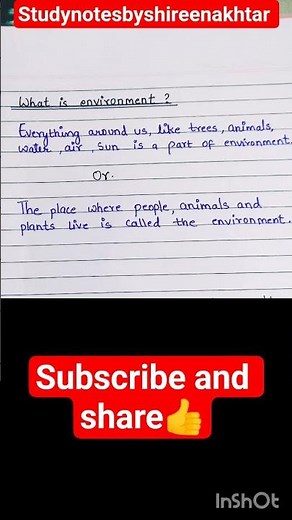 Studynotesbyshireenakhtar
What is environment ?
Everything around us, like trees, animals,
water, air, sun is a part of environment.
Or.
The place where people, animals and
plants live is called the environment.
Subscribe and
share👍
InShOt